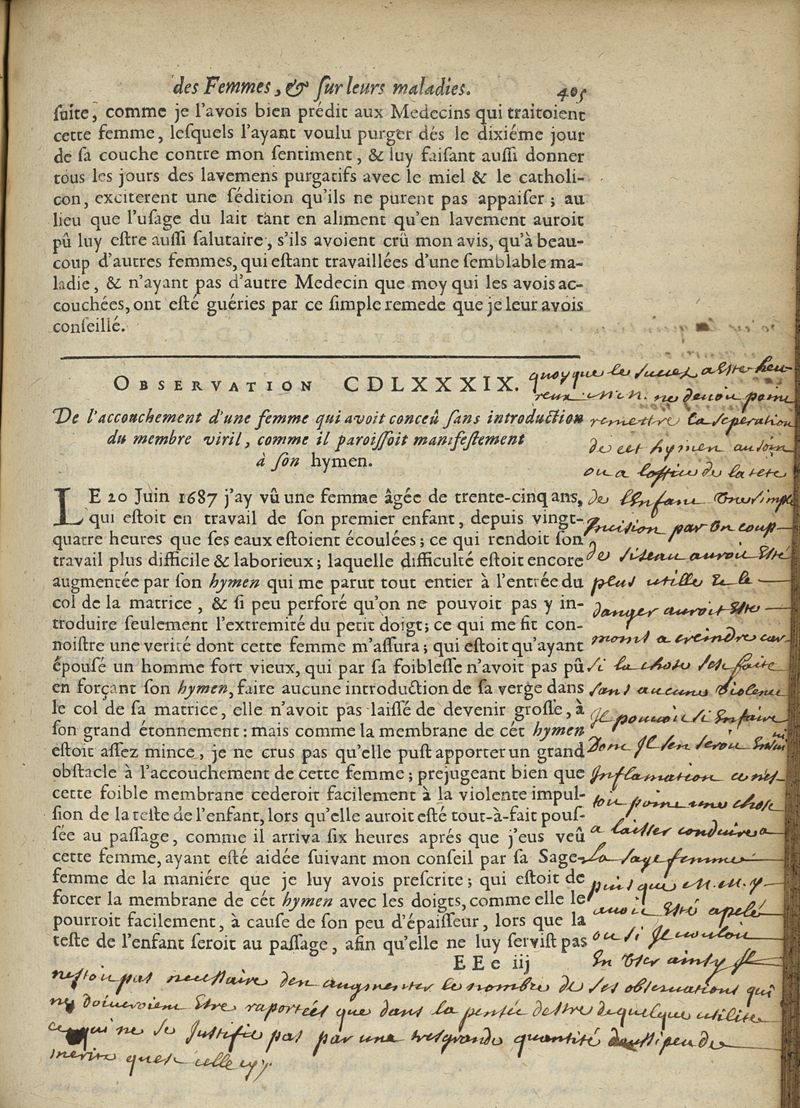 des Femmes, & sur leurs maladies. 405
suite, comme je l'avois bien prédit aux Medecins qui traitoient
cette femme, lesquels l'ayant voulu purger dés le dixiéme jour
de sa couche contre mon sentiment, & luy faisant aussi donner
tous les jours des lavemens purgatifs avec le miel & le catholi-
con, exciterent une sédition qu'ils ne purent pas appaiser; au
lieu que l'usage du lait tant en aliment qu'en lavement auroit
pû luy estre aussi salutaire, s'ils avoient crû mon avis, qu'à beau-
coup d'autres femmes, qui estant travaillées d'une semblable ma-
ladie, & n'ayant pas d'autre Medecin que moy qui les avois ac-
couchées, ont esté guéries par ce simple remede que je leur avois
conseillé.
OBSERVATION CDLXXXIX.
De l'accouchement d'une femme qui avoit conceû sans introduction
du membre viril, comme il paroissoit manifestement
à son hymen.
LE 20 Juin 1687 j'ay vû une femme âgée de trente-cinq ans,
qui estoit en travail de son premier enfant, depuis vingt-
quatre heures que ses eaux estoient écoulées; ce qui rendoit son
travail plus difficile & laborieux; laquelle difficulté estoit encore
augmentée par son hymen qui me parut tout entier à l'entrée du
col de la matrice, & si peu perforé qu'on ne pouvoit pas y in-
troduire seulement l'extremité du petit doigt; ce qui me fit con-
noistre une verité dont cette femme m'assura; qui estoit qu'ayant
épousé un homme fort vieux, qui par sa foiblesse n'avoit pas pû
en forçant son hymen, faire aucune introduction de sa verge dans
le col de sa matrice, elle n'avoit pas laissé de devenir grosse, à
son grand étonnement: mais comme la membrane de cét hymen
estoit assez mince, je ne crus pas qu'elle pust apporter un grand
obstacle à l'accouchement de cette femme; prejugeant bien que
cette foible membrane cederoit facilement à la violente impul-
sion de la teste de l'enfant, lors qu'elle auroit esté tout-à-fait pous-
sée au passage, comme il arriva six heures aprés que j'eus veû
cette femme, ayant esté aidée suivant mon conseil par sa Sage-
femme de la maniére que je luy avois prescrite; qui estoit de
forcer la membrane de cét hymen avec les doigts, comme elle le
pourroit facilement, à cause de son peu d'épaisseur, lors que la
teste de l'enfant seroit au passage, afin qu'elle ne luy servist pas
EEe iij
quoy que le succez a esté heu-
reux ne devoit point
remettre la seperation
de cet hymen au soin
ou a l'office de la tete
de l'enfant une simple
incision par un coup
de siseau auroit esté
plus utille et le
danger auroit esté
moins a creindre car
si la chose s'est faite
sans aucune violence
il pouvoit s'en faire
donc il s'en seroit ensui
inflamation ce n'est
tou point une chose
a laisser conduire a
la sage femme
puis que M. M. y
avoit esté apelé
ou si il vouloit
en user ainsy il
n'estoit pas necessaire d'en augmenter le nombre de ses observations qui
ny doiveroient estre raportées que dans la pensée d'estre de quelque utilité
ce qui ne se justifie pas par une tres grande quantité d'aussi peu de
merite qu'est celle cy